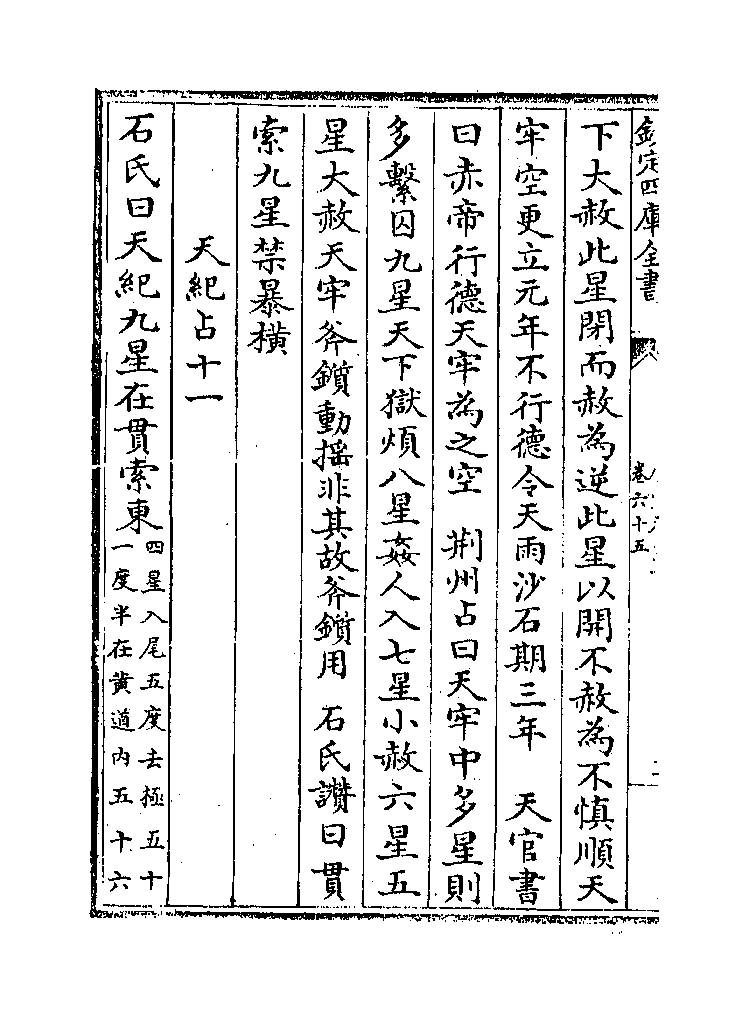 欽定四庫全書
卷六十五
下大赦此星閉而赦為逆此星以開不赦為不慎順天
牢空更立元年不行德令天雨沙石期三年　天官書
曰赤帝行德天牢為之空　荆州占曰天牢中多星則
多繫囚九星天下獄煩八星姦人入七星小赦六星五
星大赦天牢斧鑕動揺非其故斧鑕用　石氏讃曰貫
索九星禁暴橫
天紀占十一
石氏曰天紀九星在貫索東四星入尾五度去極五十
一度半在黄道内五十六